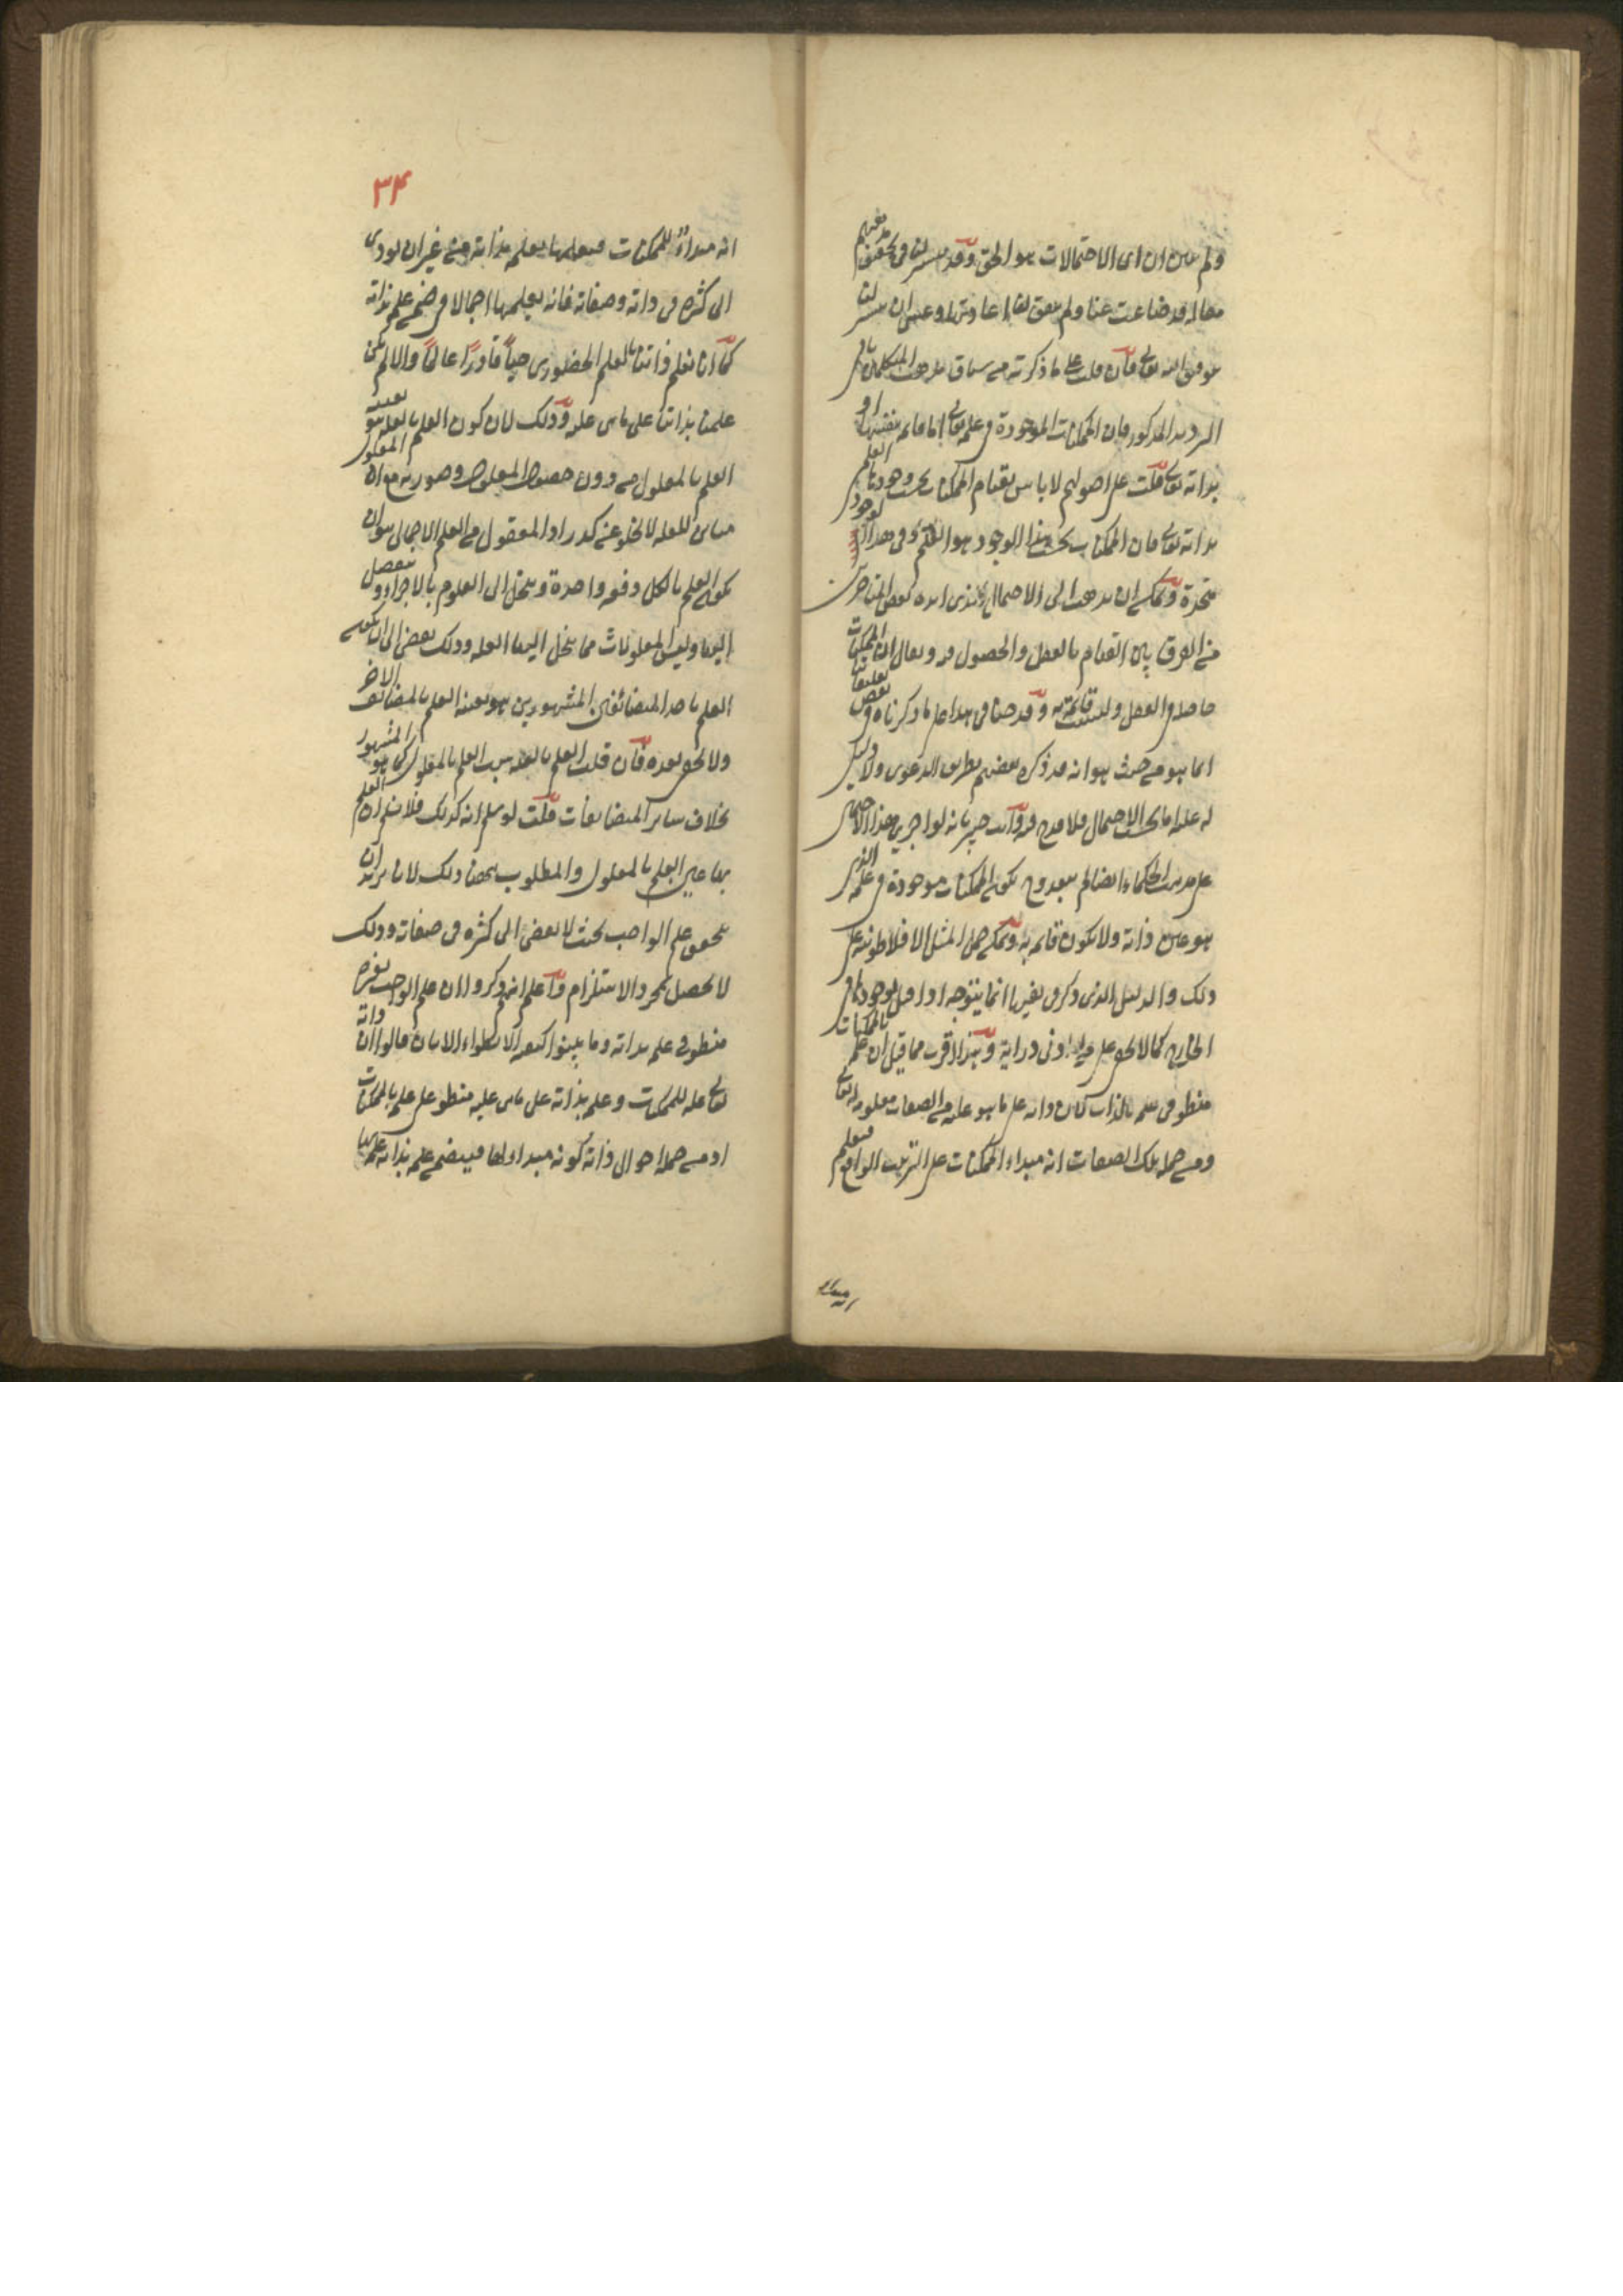 ولم يتبين ان اى الاحتمالات هو الحق وقد تيسر لنا فى تحقيق مذهبهم
مقالة قد ضاعت عنا ولم يتفق لنا اعادتها وعسى ان يتيسر لنا
بتوفيق الله تعالى فان قلت على ما ذكرته من سياق مذهب المتكلمين يأتى
الترديد المذكور فان الممكنات الموجودة فى علمه تعالى اما قائمة بنفسها او
بذاته تعالى قلت على اصولهم لا باس بقيام الممكنات بحسب وجودها العلمى
بذاته تعالى فان الممكنات بحسب هذا الوجود هو العلم وفى هذا الوجود
متحدة ويمكن ان يذهب الى الاحتمال الذى ابداه بعض المتاخرين
من الفرق بين القيام بالعقل والحصول فيه ويقال ان الممكنات
حاصلة فى العقل وليست قائمة به وقد حنا فى هذا على ما ذكرناه فى بعض تعليقاتنا
انما هو من حيث هو انه قد ذكره بعضهم بطريق الدعوى ولا دليل
له عليه اما بحسب الاحتمال فلا قدح فيه وانت خبير بانه لو اجرى هذا الاحتمال
على مذهب الحكماء ايضا لم يبعد وح تكون الممكنات موجودة فى علمه الذى
هو عين ذاته ولا تكون قائمة به ويمكن حمل المثل الافلاطونية على
ذلك والدليل الذى ذكر فى نفيها انما يتوجه اذا قيل بوجودها فى
الخارج كما لا يخفى على من له ادنى دراية وهذا اقرب مما قيل ان علمه بالممكنات
منطو فى علمه بالذات لان ذاته على ما هو عليه من الصفات معلومة له تعالى
ومن جملة تلك الصفات انه مبداء الممكنات على الترتيب الواقع فيعلم
انه مبداء
٣٤
انه مبداء للممكنات فيعلمها بعلمه بذاته من غير ان يؤدى
الى كثرة فى ذاته وصفاته فانه يعلمها اجمالا فى ضمن علمه بذاته
كما انا نعلم ذاتنا بالعلم الحضورى حيا قادرا عالما والا لم يكن
علمنا بذاتنا على ما هى عليه وذلك لان كون العلم بالعلة هو بعينه
العلم بالمعلول من دون حضور المعلول وصورته مع ان المعلول
مباين للعلة لا يخلو عن كدر اذ المعقول من العلم الاجمالى هو ان
يكون العلم بالكل دفعة واحدة وينحل الى العلوم بالاجزاء وتفصيل
اليها وليس المعلولات مما ينحل اليها العلة وذلك يفضى الى ان يكون
العلم باحد المتضائفين المشهورين هو بعينه العلم بالمضائف الاخر
ولا يخفى بعده فان قلت العلم بالعلة سبب العلم بالمعلول كما هو المشهور
بخلاف ساير المتضايفات قلت لو سلم انه كذلك فلا نسلم ان العلم
بها عين العلم بالمعلول والمطلوب ههنا ذلك لانا نريد ان
يتحقق علم الواجب بحيث لا يفضى الى كثرة فى صفاته وذلك
لا يحصل بمجرد الاستلزام واعلم انهم ذكروا ان علم الواجب بغيره
منطو فى علمه بذاته وما بينوا كيفية الانطواء الا بان قالوا ان ذاته
تعالى علة للممكنات وعلمه بذاته على ما هى عليه منطو على علمه بالممكنات
اذ من جملة احوال ذاته كونه مبداء لها فيتضمن علمه بذاته علمه بها